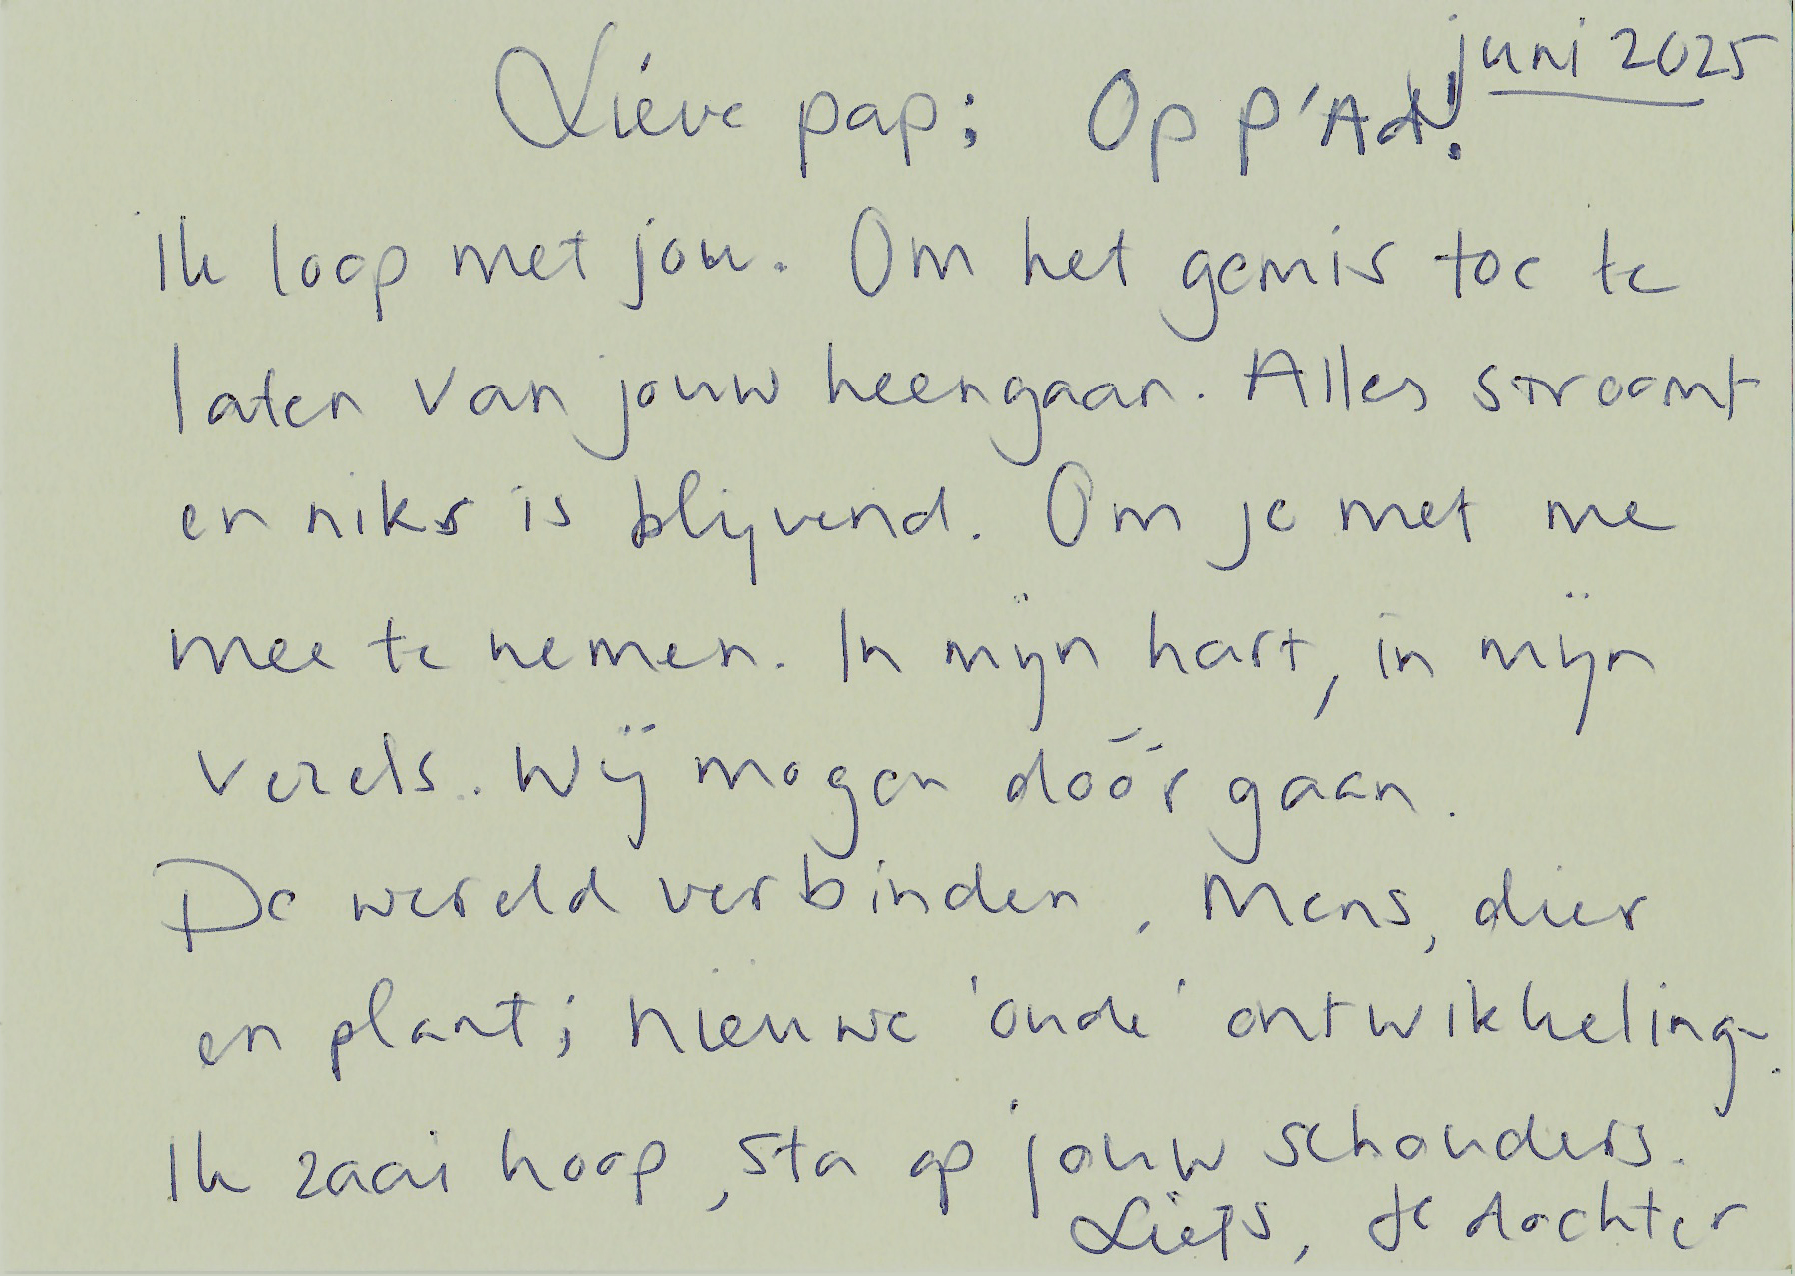 juni 2025
Lieve pap; Op p'Ad!
Ik loop met jou. Om het gemis toe te
laten van jouw heengaan. Alles stroomt
en niks is blijvend. Om je met me
mee te nemen. In mijn hart, in mijn
vezels.. Wij mogen dóór gaan.
De wereld verbinden, Mens, dier
en plant; nieuwe 'oude' ontwikkeling.
Ik zaai hoop, sta op jouw schouders.
Lieps, je dochter